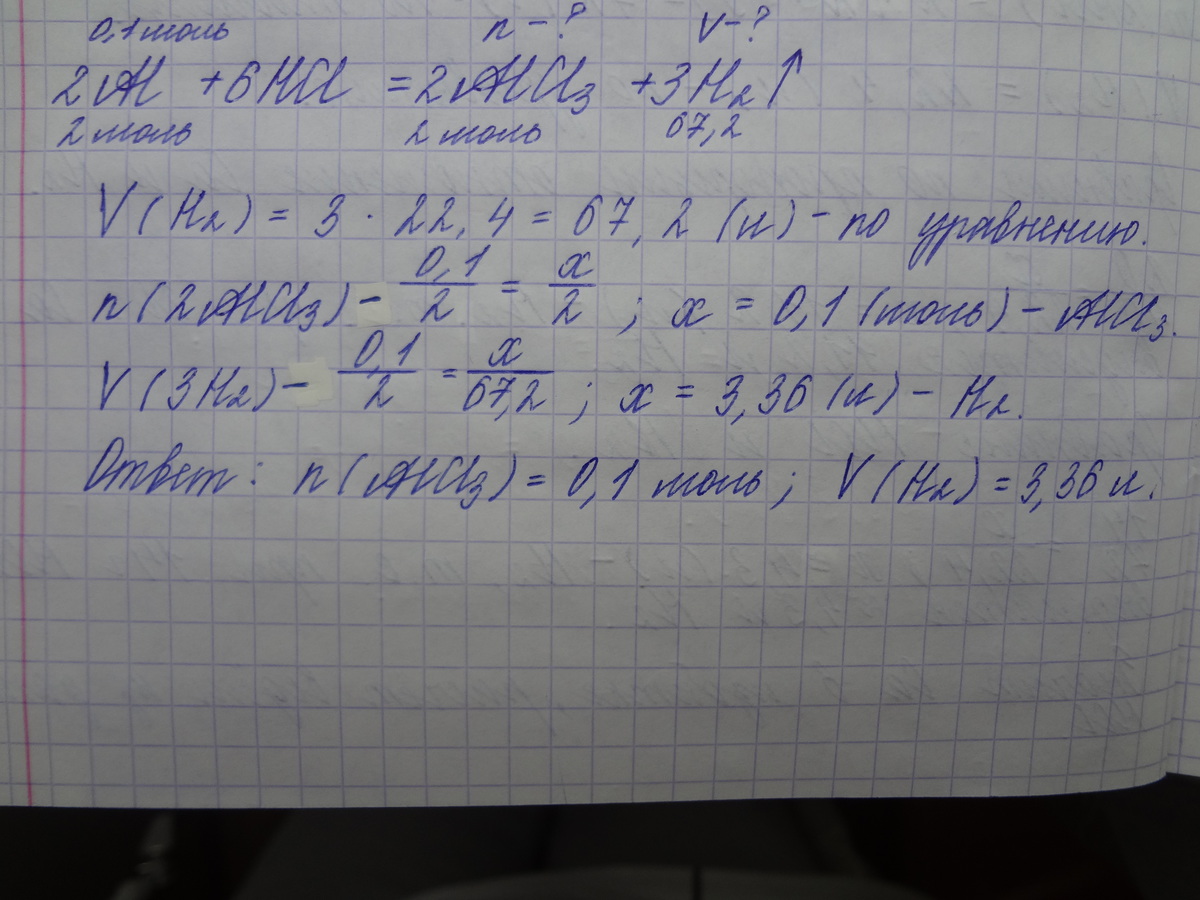 0,1 моль n - ? V - ?
2Al + 6HCl = 2AlCl₃ + 3H₂↑
2 моль 2 моль 67,2
V(H₂) = 3 · 22,4 = 67,2 (л) - по уравнению.
n(2AlCl₃) - 0,1/2 = x/2 ; x = 0,1 (моль) - AlCl₃.
V(3H₂) - 0,1/2 = x/67,2 ; x = 3,36 (л) - H₂.
Ответ: n(AlCl₃) = 0,1 моль; V(H₂) = 3,36 л.